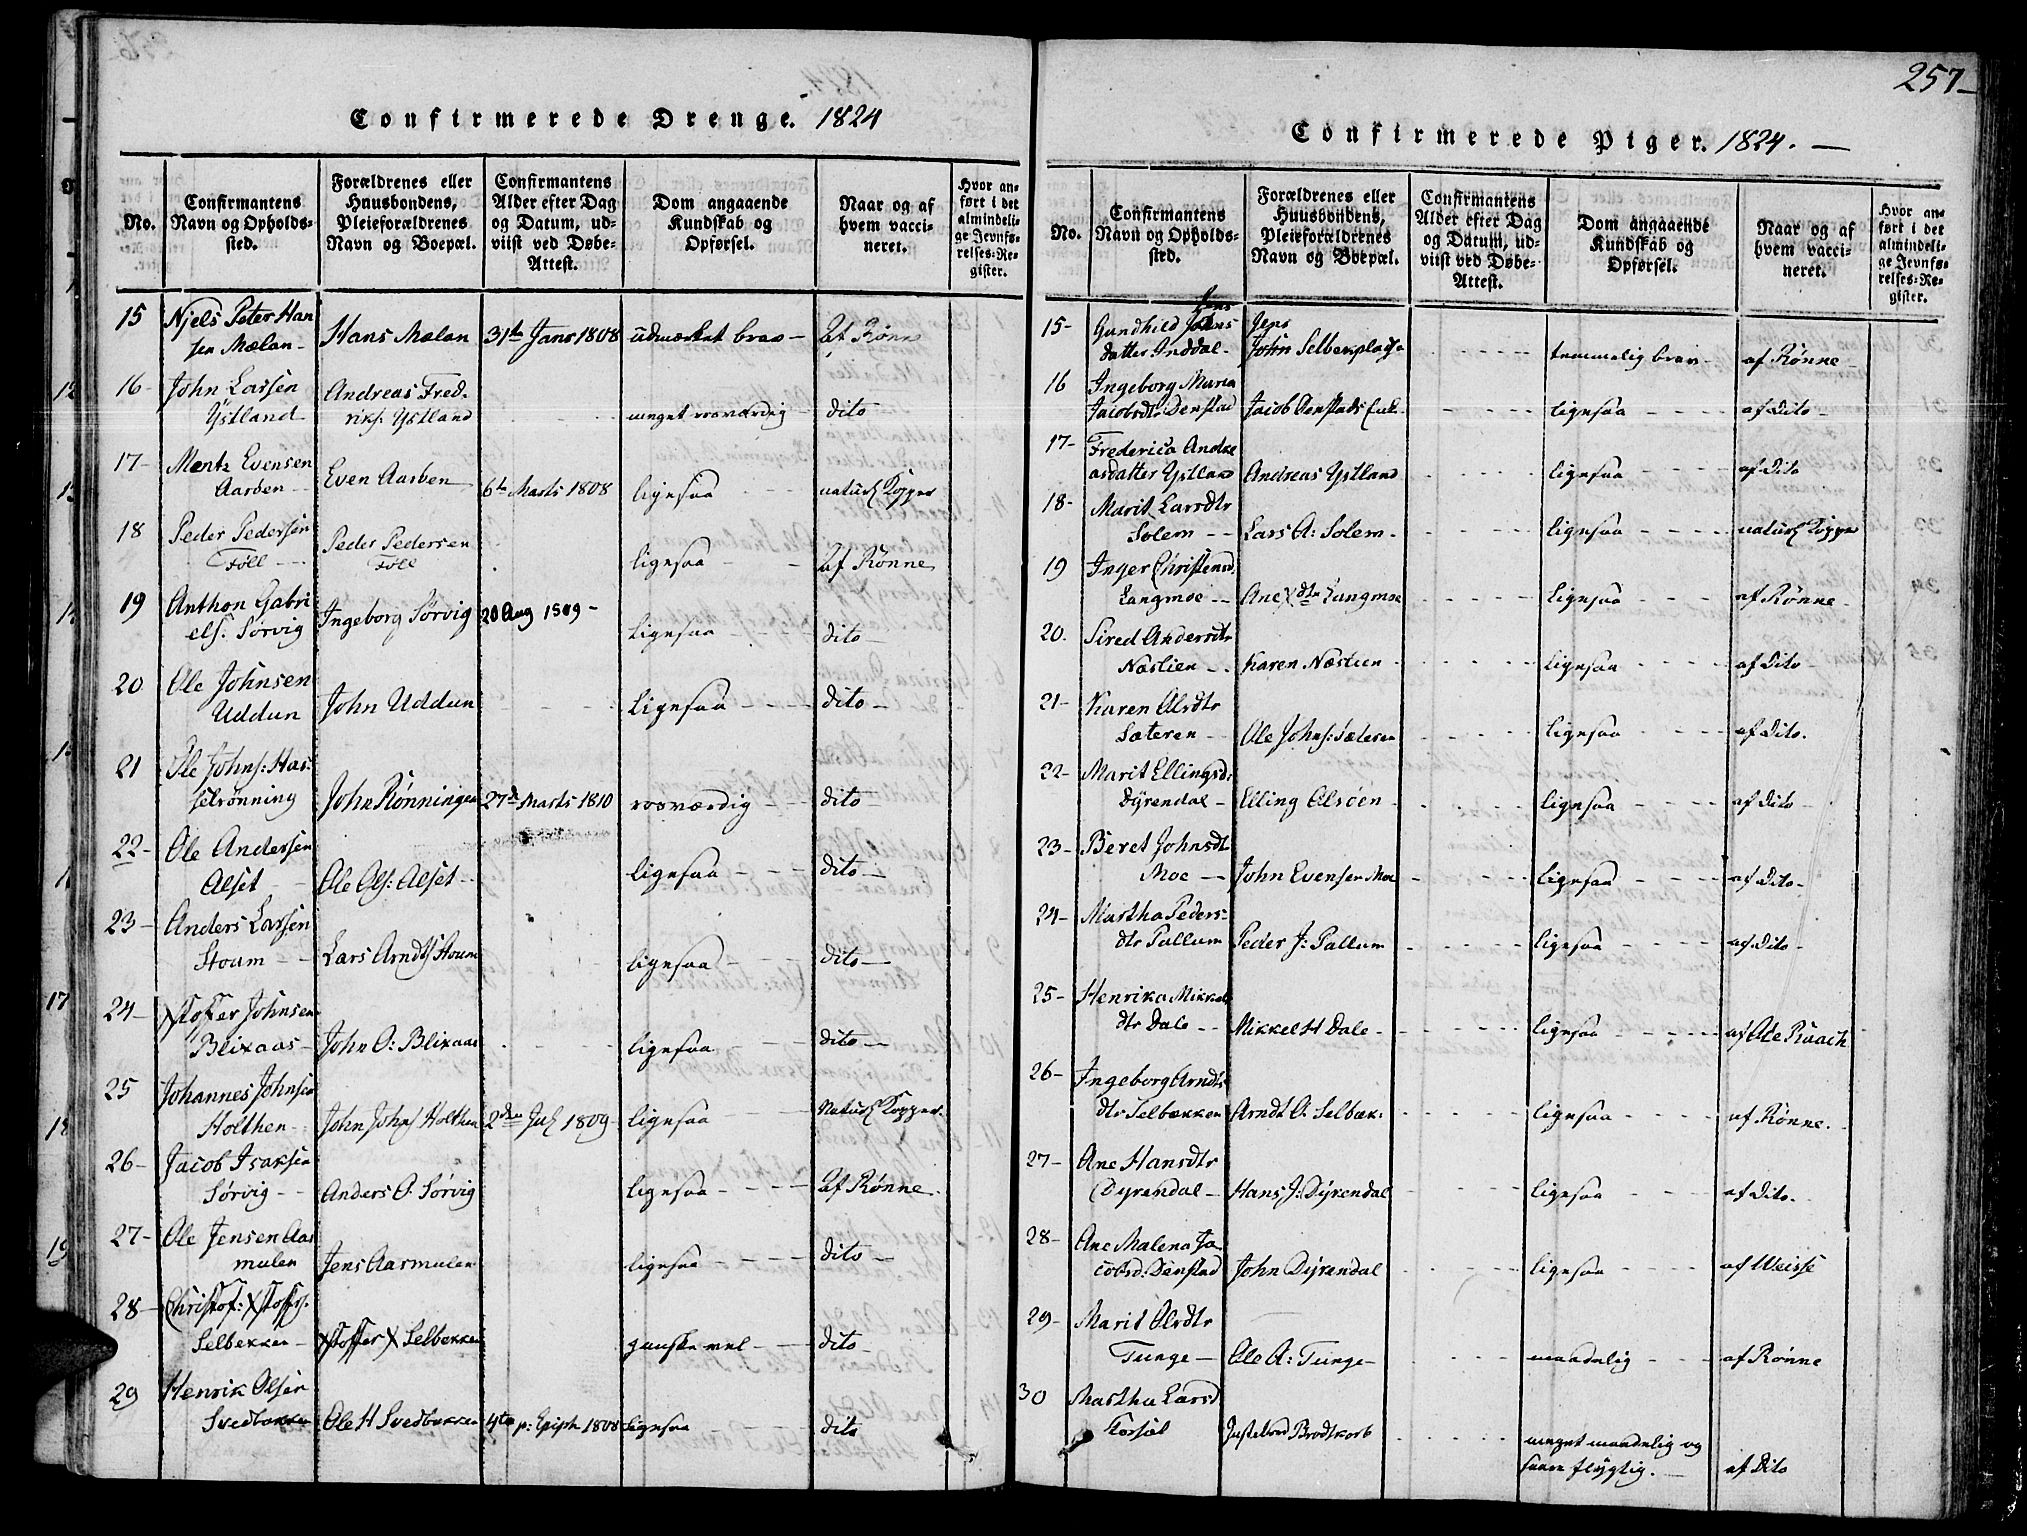 257
Confirmerede Drenge. 1824
No.
Confirmantens Navn og Opholds-sted.
Forældrenes eller Huusbondens, Pleieforældrenes Navn og Boepæl.
Confirmantens Alder efter Dag og Datum, ud-viist ved Døbe-Attest.
Dom angaaende Kundskab og Opførsel.
Naar og af hvem vacci-neret.
Hvor an-ført i det almindeli-ge Jevnfø-relses-Re-gister.
15 Njels Peter Han
sen Mælan - Hans Mælan 31te Janr 1808 udmærket brav - Af Rønne
16 - John Larsen Andreas Fred.
Ystland riks. Ystland meget rosværdig - dito
17 - Mentz Evensen
Aarben - Even Aarben 6te Marts 1808 ligesaa naturl Kopper
18 Peder Pedersen Peder Pedersen
Föll - Föll ligesaa - Af Rønne
19 Anthon Gabri
els. Sørvig Ingeborg Sørvig 20 Aug 1809 - ligesaa - dito -
20 Ole Johnsen
Uddun John Uddun Ligesaa - dito -
21 Ole Johns: Has:
selrønning John Rønningen 27de Marts 1810 rosværdig - dito -
22 - Ole Andersen
Alset - Ole Ols: Alset - ligesaa - dito -
23 - Anders Larsen
Stoum - Lars Arndts Stoum ligesaa - dito -
24 - Xstoffer Johnsen
Blixaas - John O: Blixaas ligesaa - dito -
25 Johannes Johnsen
Holthen - John Johns Holthen 2den Jul 1809 - ligesaa Naturl Kopper.
26 - Jacob Isaksen
Sørvig - Anders O. Sørvig ligesaa - Af Rønne.
27 - Ole Jensen Aas
mulen Jens Aasmulen ligesaa - dito -
28 - Christof: Xstoffs.
Selbekken - Xstoffer X Selbekken ganske vel - dito -
29 Henrik Olsen
Svedbakken Ole H Svedbakken 4te p: Epiph 1808 ligesaa - dito
Confirmerede Piger. 1824. -
No.
Confirmantens Navn og Opholds-sted.
Forældrenes eller Huusbondens, Pleieforældrenes Navn og Boepæl.
Confirmantens Alder efter Dag og Datum, ud-viist ved Døbe-Attest.
Dom angaaende Kundskab og Opførsel.
Naar og af hvem vacci-neret.
Hvor an-ført i det almindeli-ge Jevnfø-relses-Re-gister.
15 - Gundhild Jens Jens
datter Inddal - John Selbekplads temmelig brav - af Rønne -
16 Ingeborg Maria
Jacobsdtr Denstad Jacob Denstads Enk - ligesaa - af Dito -
17 - Frederica Andre
asdatter Ystland Andreas Ystland ligesaa - af Dito
18 - Marit Larsdtr
Solem - Lars A: Solem - ligesaa - naturl Kopper
19 Inger Christensd.
Langmoe - Ane X dtr Langmoe Ligesaa - af Rønne -
20. Sired Andersdtr
Næstien - Karen Næstien ligesaa - af Dito -
21 - Karen Olsdtr
Sæteren - Ole Johns: Sæteren ligesaa - af Dito.
22 - Marit Ellingsdr
Dyrendal - Elling Olsöen ligesaa - af Dito -
23 - Beret Johnsdtr
Moe - John Evensen Moe ligesaa - af Dito -
24 - Martha Peders-
dtr Pallum Peder J: Pallum ligesaa - af Dito -
25 - Henrika Mikkels
dtr Dale - Mikkel H Dale - ligesaa - af Ole Raach
26 - Ingeborg Arndts
dtr Selbækken Arndt O: Selbæk: ligesaa - af Rønne.
27 - Ane Hansdtr
Dyrendal - Hans J: Dyrendal ligesaa - af Dito.
28 - Ane Malena Ja
cobsd: Denstad John Dyrendal ligesaa - af Weisse
29 - Marit Olsdtr
Tunge - Ole A: Tunge - maadelig - af Rønne
30 Martha Larsd
Korsöl Justebrod Brodtkorb meget maadelig og
saare flygtig. - af Dito